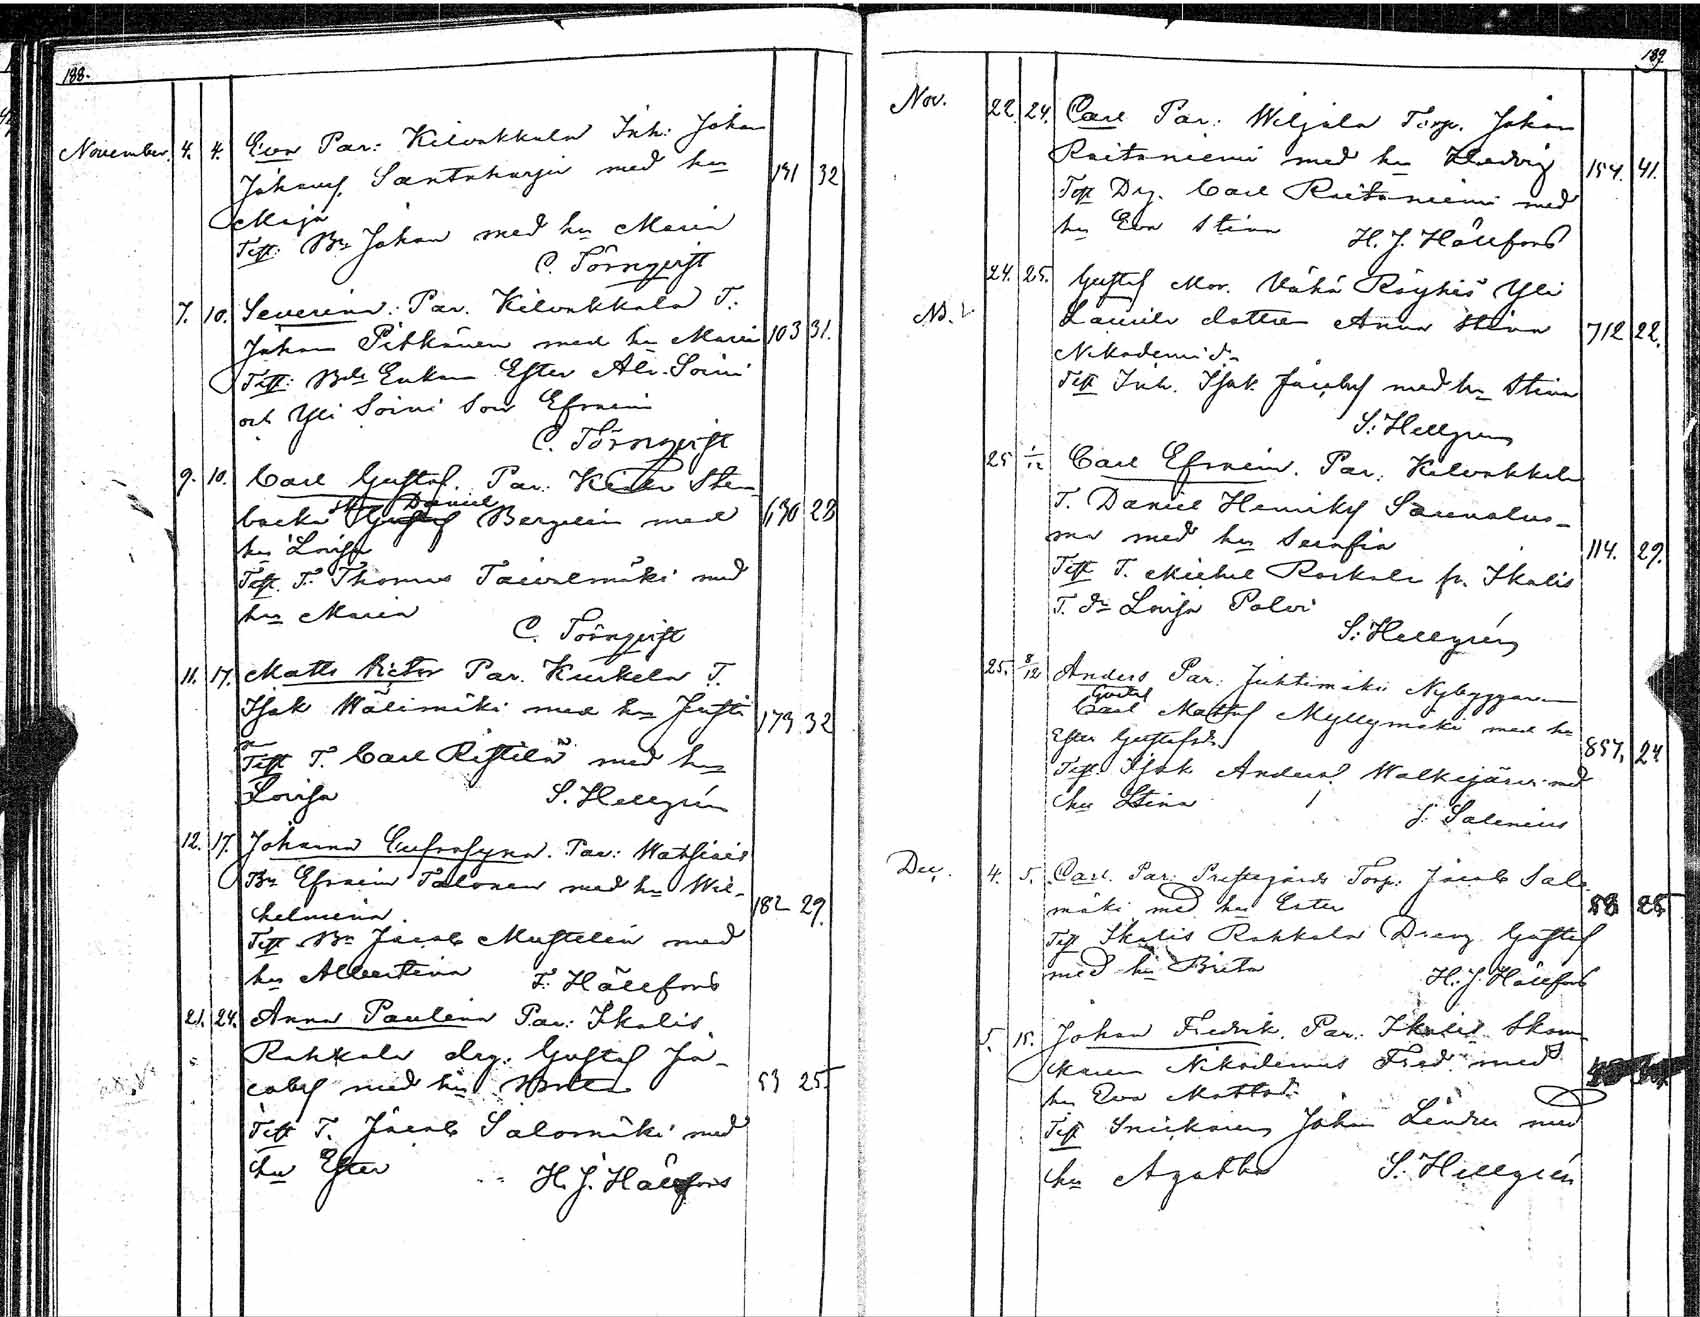 188.
November. 4. 4. Eva Par: Kilvakkala Inh: Johan
Johansf. Santaharju med hu
Maja 191 32
Test: Bn Johan med hu Maria
C. Törnqvist
7. 10. Severina. Par. Kilvakkala T.
Johan Pitkänen med hu Maria 103 31.
Test: Bde Enkan Ester Ala Soini
och Yli Soini Son Efraim
C. Törnqvist
9. 10. Carl Gustaf. Par:
backa Daniel Gustaf Bergelin med 28
hu Lovisa
Test T. Thomas Taivalmäki med
hu Maria
C. Törnqvist
11. 17. Matts Victor Par. Kurkela T.
Isak Wälimäki med hu Justi 32
na
Test T. Carl Ristilä med hu
Lovisa S. Hellgrén
12. 17. Johanna Eufrosyna. Par:
Bn Efraim Talonen med hu Wil-
helmina. 182 29.
Test Bn Jacob Mustelin med
hu Albertina F. Hällfors
21. 24. Anna Paulina Par: Ikalis
Rahkala drg. Gustaf Ja-
cobsf med hu 53 25
Test T. Jacob Salomäki med
hu Ester H. J. Hällfors
189
Nov. 22. 24. Carl Par: Wiljala Torp. Johan
Raitaniemi med hu Hedvig 154. 41.
Test Drg. Carl Raitaniemi med
hu Eva Stina H. J. Hällfors
24. 25. Gustaf Mor. Vähä Röyhiö Yli
Laurila dotter Anna Stina 712 22.
Nikodemi dr
Test Inh. Isak Jacobsf med hu Stina
S. Hellgren
25 1/12 Carl Efraim. Par: Kilvakkala
T. Daniel Henriksf Saunalus-
ma med hu Serafia 114. 29.
Test T. Michel Raskala fr. Ikalis
T. dr Lovisa Palvi
S. Hellgrén
25. 8/12 Anders Par: Juhtimäki Nybyggaren
Gustaf
Carl Mattsf Myllymäki med hu
Ester Gustafsdr 857. 24
Test. Isak Andersf. Walkejärvi med
hu Stina
J. Salenius
Dec. 4. 5. Carl. Par: Prestgårds Torp: Jacob Salo
mäki med hu Ester 58 28
Test Ikalis Rahkala Dreng Gustaf
med hu Brita H. J. Hällfors
5. 15. Johan Fredrik. Par. Ikalis Skom
karen Nikodemus Fred. med
hu Eva Mattsdr
Test Snickaren Johan Linder med
hu Agatha S. Hellgrén